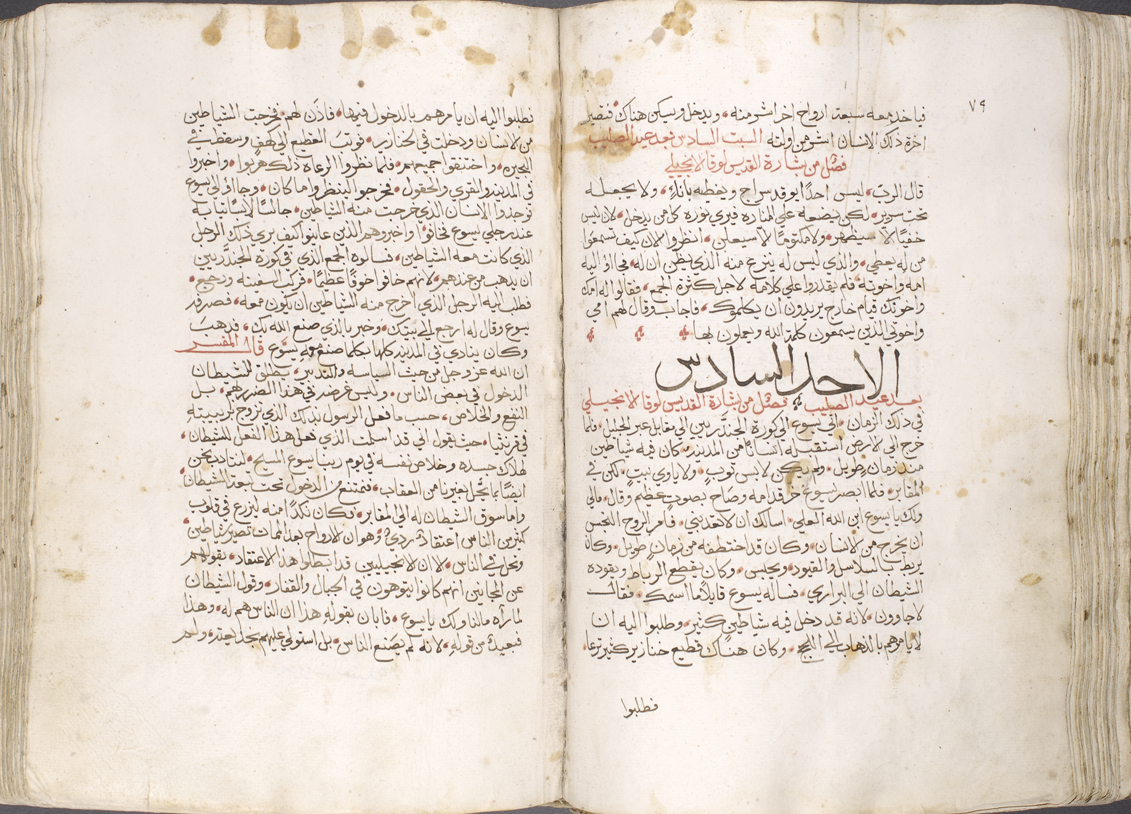 ٧٩
فياخد معه سبعة ارواح اخر اشر منه ويدخل ويسكن هناك فتصير
اخرة ذلك الانسان اشر من اولته السبت السادس بعد عيد الصليب
فصل من بشارة القديس لوقا الانجيلي
قال الرب ليس احدًا يوقد سراج ويغطيه باناء ولا يجعله
تحت سرير لكن يضعه علي المناره فيري نوره كل من يدخل لان ليس
خفيًا الا سيظهر ولا مكتومًا الا سيعلن انظروا الان كيف تسمعوا
من له يعطي والذي ليس له ينزع منه الذي يظن ان له في اوا اليه
امه واخوته فلم يقدروا علي كلامه لاجل كثرة الجمع فقالوا له امك
واخوتك قيام خارج يريدون ان يكلموك فاجاب وقال لهم امي
واخوتي الذين يسمعون كلمة الله ويعملون بها
الاحد السادس
بعد عيد الصليب فصل من بشارة القديس لوقا الانجيلي
في ذلك الزمان اتي يسوع الي كورة الجدريين الي مقابل عبر الجليل فلما
خرج الي الارض استقبله انسانًا من المدينه كان فيه شياطين
منذ زمان طويل ولم يكن لابس ثوب ولا ياوي بيت لكن في
المقابر فلما ابصر يسوع خر قدامه وصاح بصوت عظيم وقال مالي
ولك يا يسوع ابن الله العلي اسالك ان لا تعذبني فامر الروح النجس
ان يخرج من الانسان وكان قد اختطفه من زمان طويل وكان
يربط بالسلاسل والقيود ويحبس وكان يقطع الرباط ويقوده
الشيطان الي البراري فساله يسوع قايلًا ما اسمك فقال
لاجاوون لانه قد دخل فيه شياطين كثير وطلبوا اليه ان
لا يامرهم بالذهاب الي اللجج وكان هناك قطيع خنازير كثير ترعا
فطلبوا
فطلبوا اليه ان يامرهم بالدخول فيها فاذن لهم فخرجت الشياطين
من الانسان ودخلت في الخنازير فوثب القطيع الي وسقط في
واختنقوا جميعهم فلما نظروا الرعاة ذلك هربوا واخبروا
في المدينه والقري والحقول فخرجوا لينظروا ما كان وجااوا الي يسوع
فوجدوا الانسان الذي خرجت منه الشياطين جالسًا لابسًا ثيابه
عند رجلي يسوع فخافوا واخبروهم الذين عاينوا كيف بري ذلك الرجل
الذي كانت معه الشياطين فسالوه الجمع الذي في كورة الجدريين
ان يذهب من عندهم لانهم خافوا خوفًا عظيمًا فركب السفينه ورجع
فطلب اليه الرجل الذي اخرج منه الشياطين ان يكون معه فصرفه
يسوع وقال له ارجع الي بيتك وخبر بالذي صنع الله بك فذهب
وكان ينادي في المدينه كلها بكلما صنع معه يسوع قال المفسر
ان الله عز وجل من حيث السياسه والتدبير يطلق للشيطان
الدخول في بعض الناس وليس غرضه في هذا الضرر لهم بل
النفع والخلاص حسب ما فعل الرسول بذلك الذي تزوج بربيبته
في قرنثيا حيث يقول اني قد اسلمت الذي فعل هذا الفعل للشيطان
لهلاك جسده وخلاص نفسه في يوم ربنا يسوع المسيح لنتادب نحن
ايضًا بما يحل بغيرنا من العقاب فنمتنع من الدخول تحت الشيطان
واما سوق الشيطان له الي المقابر فكان نكدًا منه ليزرع في قلوب
كثير من الناس اعتقاد ردي وهو ان الارواح بعد الممات تصير شياطين
وتحل في الناس الا ان الانجيليين قد ابطلوا هذا الاعتقاد بقولهم
عن المجانين انهم كانوا يتوهون في الجبال والقفار وقول الشيطان
لما راه مالنا ولك يا يسوع فابان بقوله هذا ان الناس هم له وهذا
فبعيد من قوله لانه لم يصنع الناس بل استولي عليهم